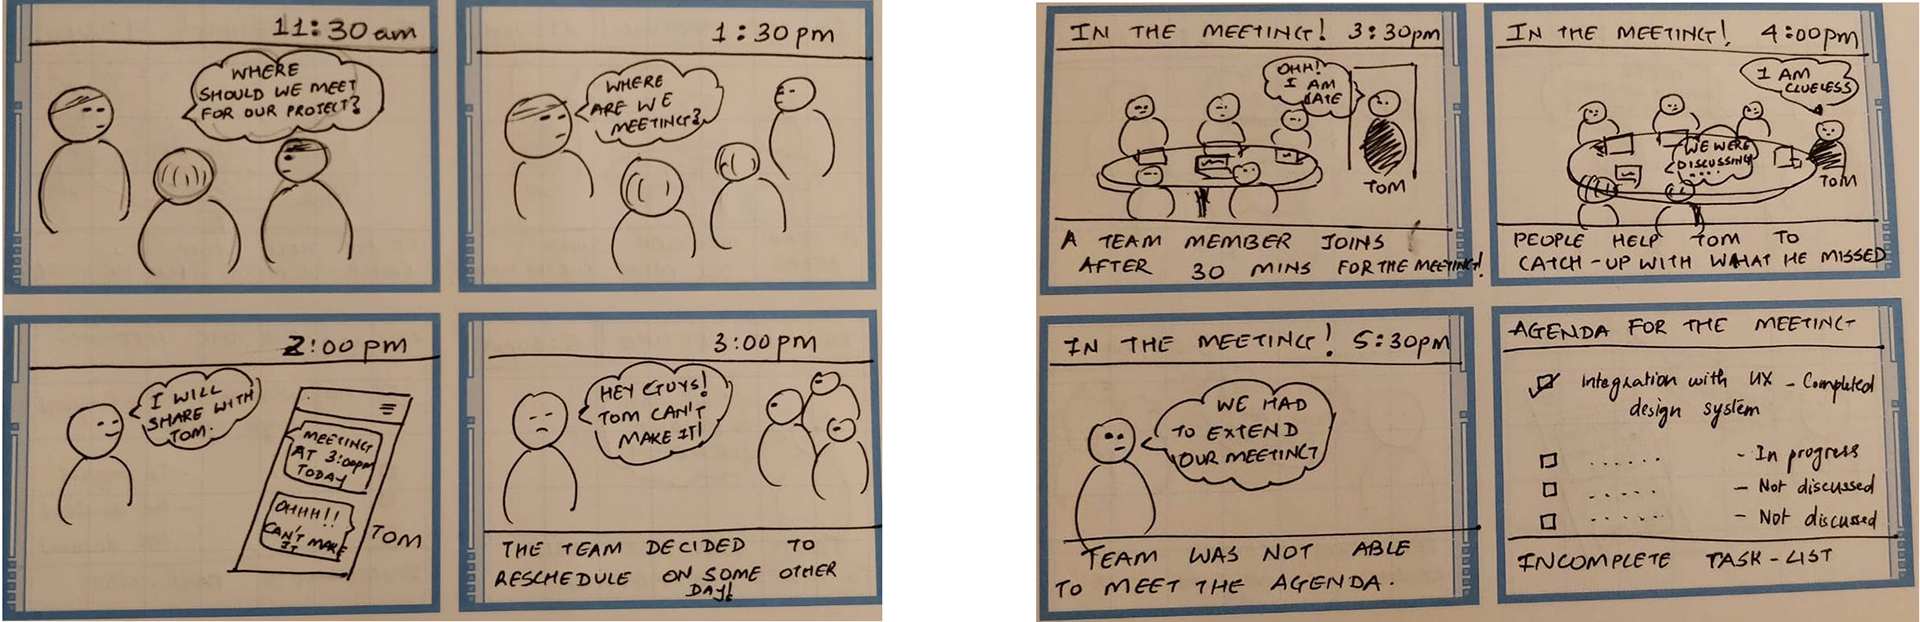 11:30 am
WHERE
SHOULD WE MEET
FOR OUR PROJECT?
1:30 pm
WHERE
ARE WE
MEETING?
2:00 pm
I WILL
SHARE WITH
TOM.
MEETING
AT 3:00pm
TODAY
OHHH!!
CAN'T MAKE
IT
TOM
3:00 pm
HEY GUYS!
TOM CAN'T
MAKE IT!
THE TEAM DECIDED TO
RESCHEDULE ON SOME OTHER
DAY!
IN THE MEETING! 3:30pm
OHH!
I AM
LATE
TOM
A TEAM MEMBER JOINS
AFTER 30 MINS FOR THE MEETING!
IN THE MEETING! 4:00pm
I AM
CLUELESS
WE WERE
DISCUSSING
....
TOM
PEOPLE HELP TOM TO
CATCH-UP WITH WHAT HE MISSED
IN THE MEETING! 5:30pm
WE HAD
TO EXTEND
OUR MEETING
TEAM WAS NOT ABLE
TO MEET THE AGENDA.
AGENDA FOR THE MEETING
Integration with UX - Completed
design system
...... - In progress
..... - Not discussed
..... - Not discussed
INCOMPLETE TASK-LIST